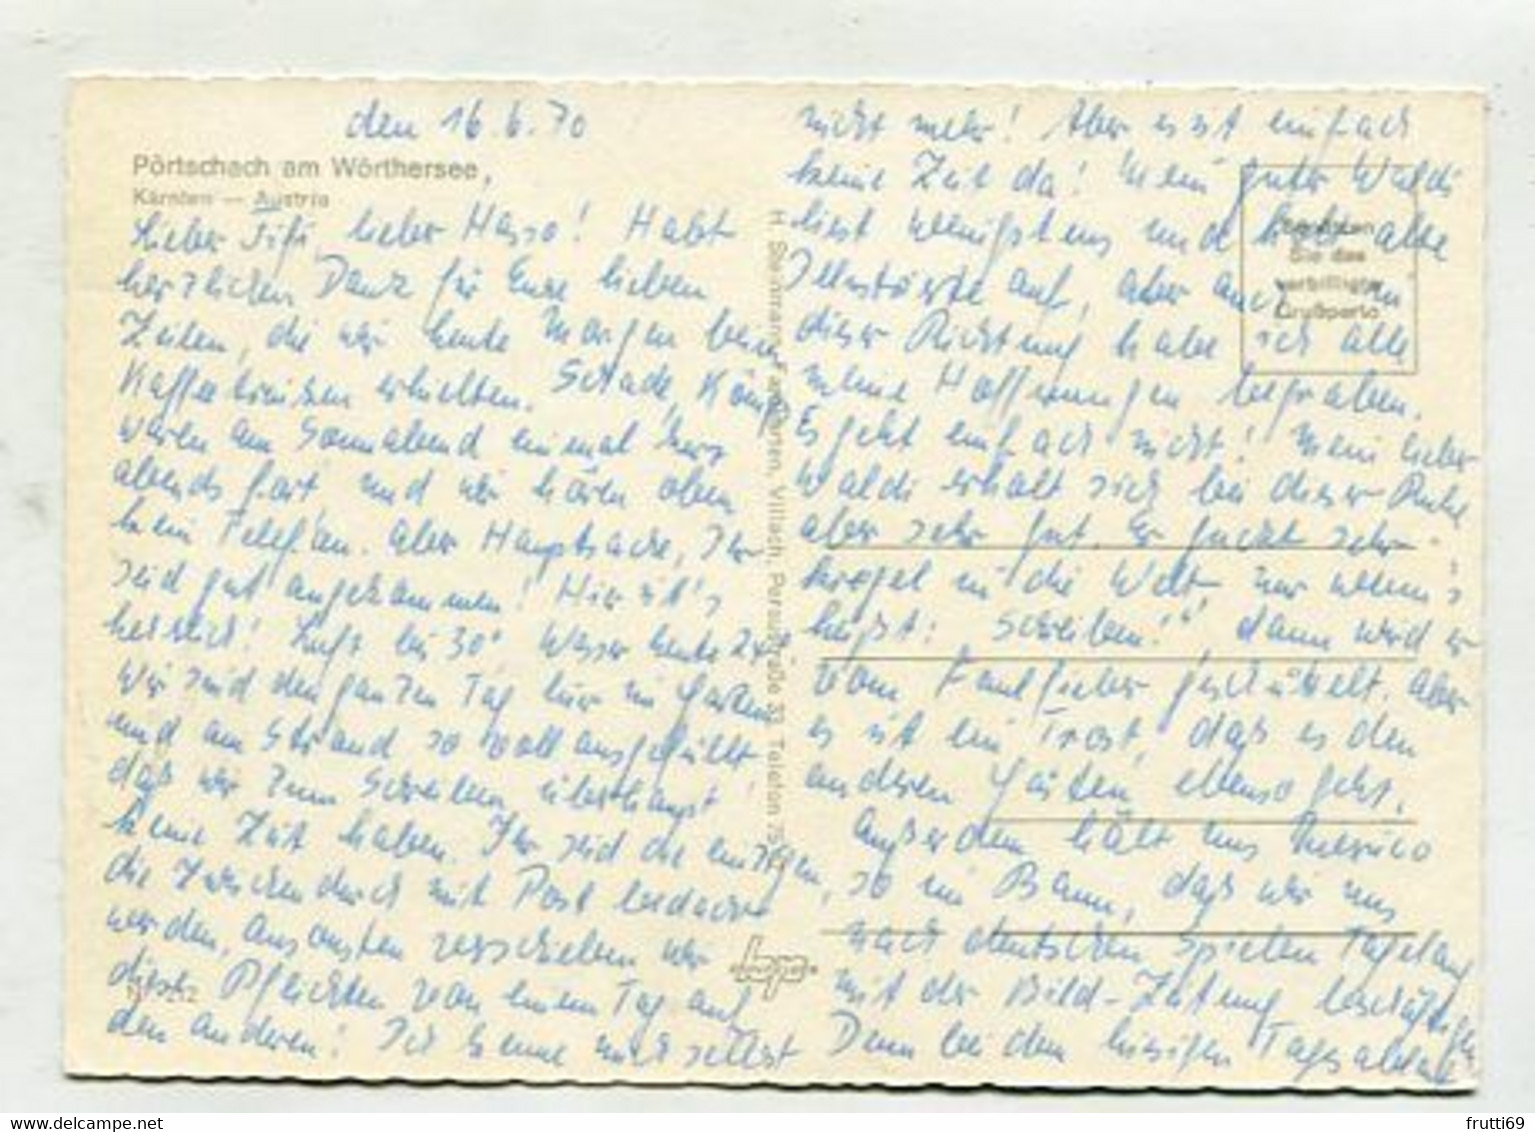 den 16.6.70
Pörtschach am Wörthersee,
Kärnten — Austria
Lieber Fifi, lieber Hasso! Habt
herzlichen Dank für Eure lieben
Zeilen, die wir heute Morgen beim
Kaffeetrinken erhielten. Schade,
waren am Sonnabend einmal
abends fort und wir hören oben
kein Telefon. Aber Hauptsache, Ihr
seid gut angekommen! Hier ist's
herrlich! Luft bis 30° Wasser heute
Wir sind den ganzen Tag hier im Garten
und am Strand so voll ausgefüllt
daß wir zum Schreiben überhaupt
keine Zeit haben. Ihr seid die einzigen,
die zwischendurch mit Post bedacht
werden, ansonsten verschieben wir
diese Pflichten von einem Tag auf
den anderen! Ich kenne mich selbst
nicht mehr! Aber es ist einfach
keine Zeit da! Mein guter Waldi
liest wenigstens und hebt alle
auf, aber auch in
dieser Richtung habe ich alle
meine Hoffnungen begraben.
Es geht einfach nicht! Mein lieber
Waldi erholt sich bei dieser Ruhe
aber sehr gut. Er guckt sehr
in die Welt nur wenn's
heißt: Schreiben!" dann wird er
vom Faulfieber geschüttelt. Aber
es ist ein Trost, daß es den
anderen Gästen ebenso geht.
Außerdem hält uns Mexico
so im Bann, daß wir uns
nach deutschen Spielen Tagelang
mit der Bild-Zeitung beschäftigen
Denn bei dem hiesigen Tagesablauf
Benützen
Sie das
verbilligte
Grußporto
H. Steidmann, Karten, Villach, Peraustraße 33, Telefon
frutti69
delcampe.net